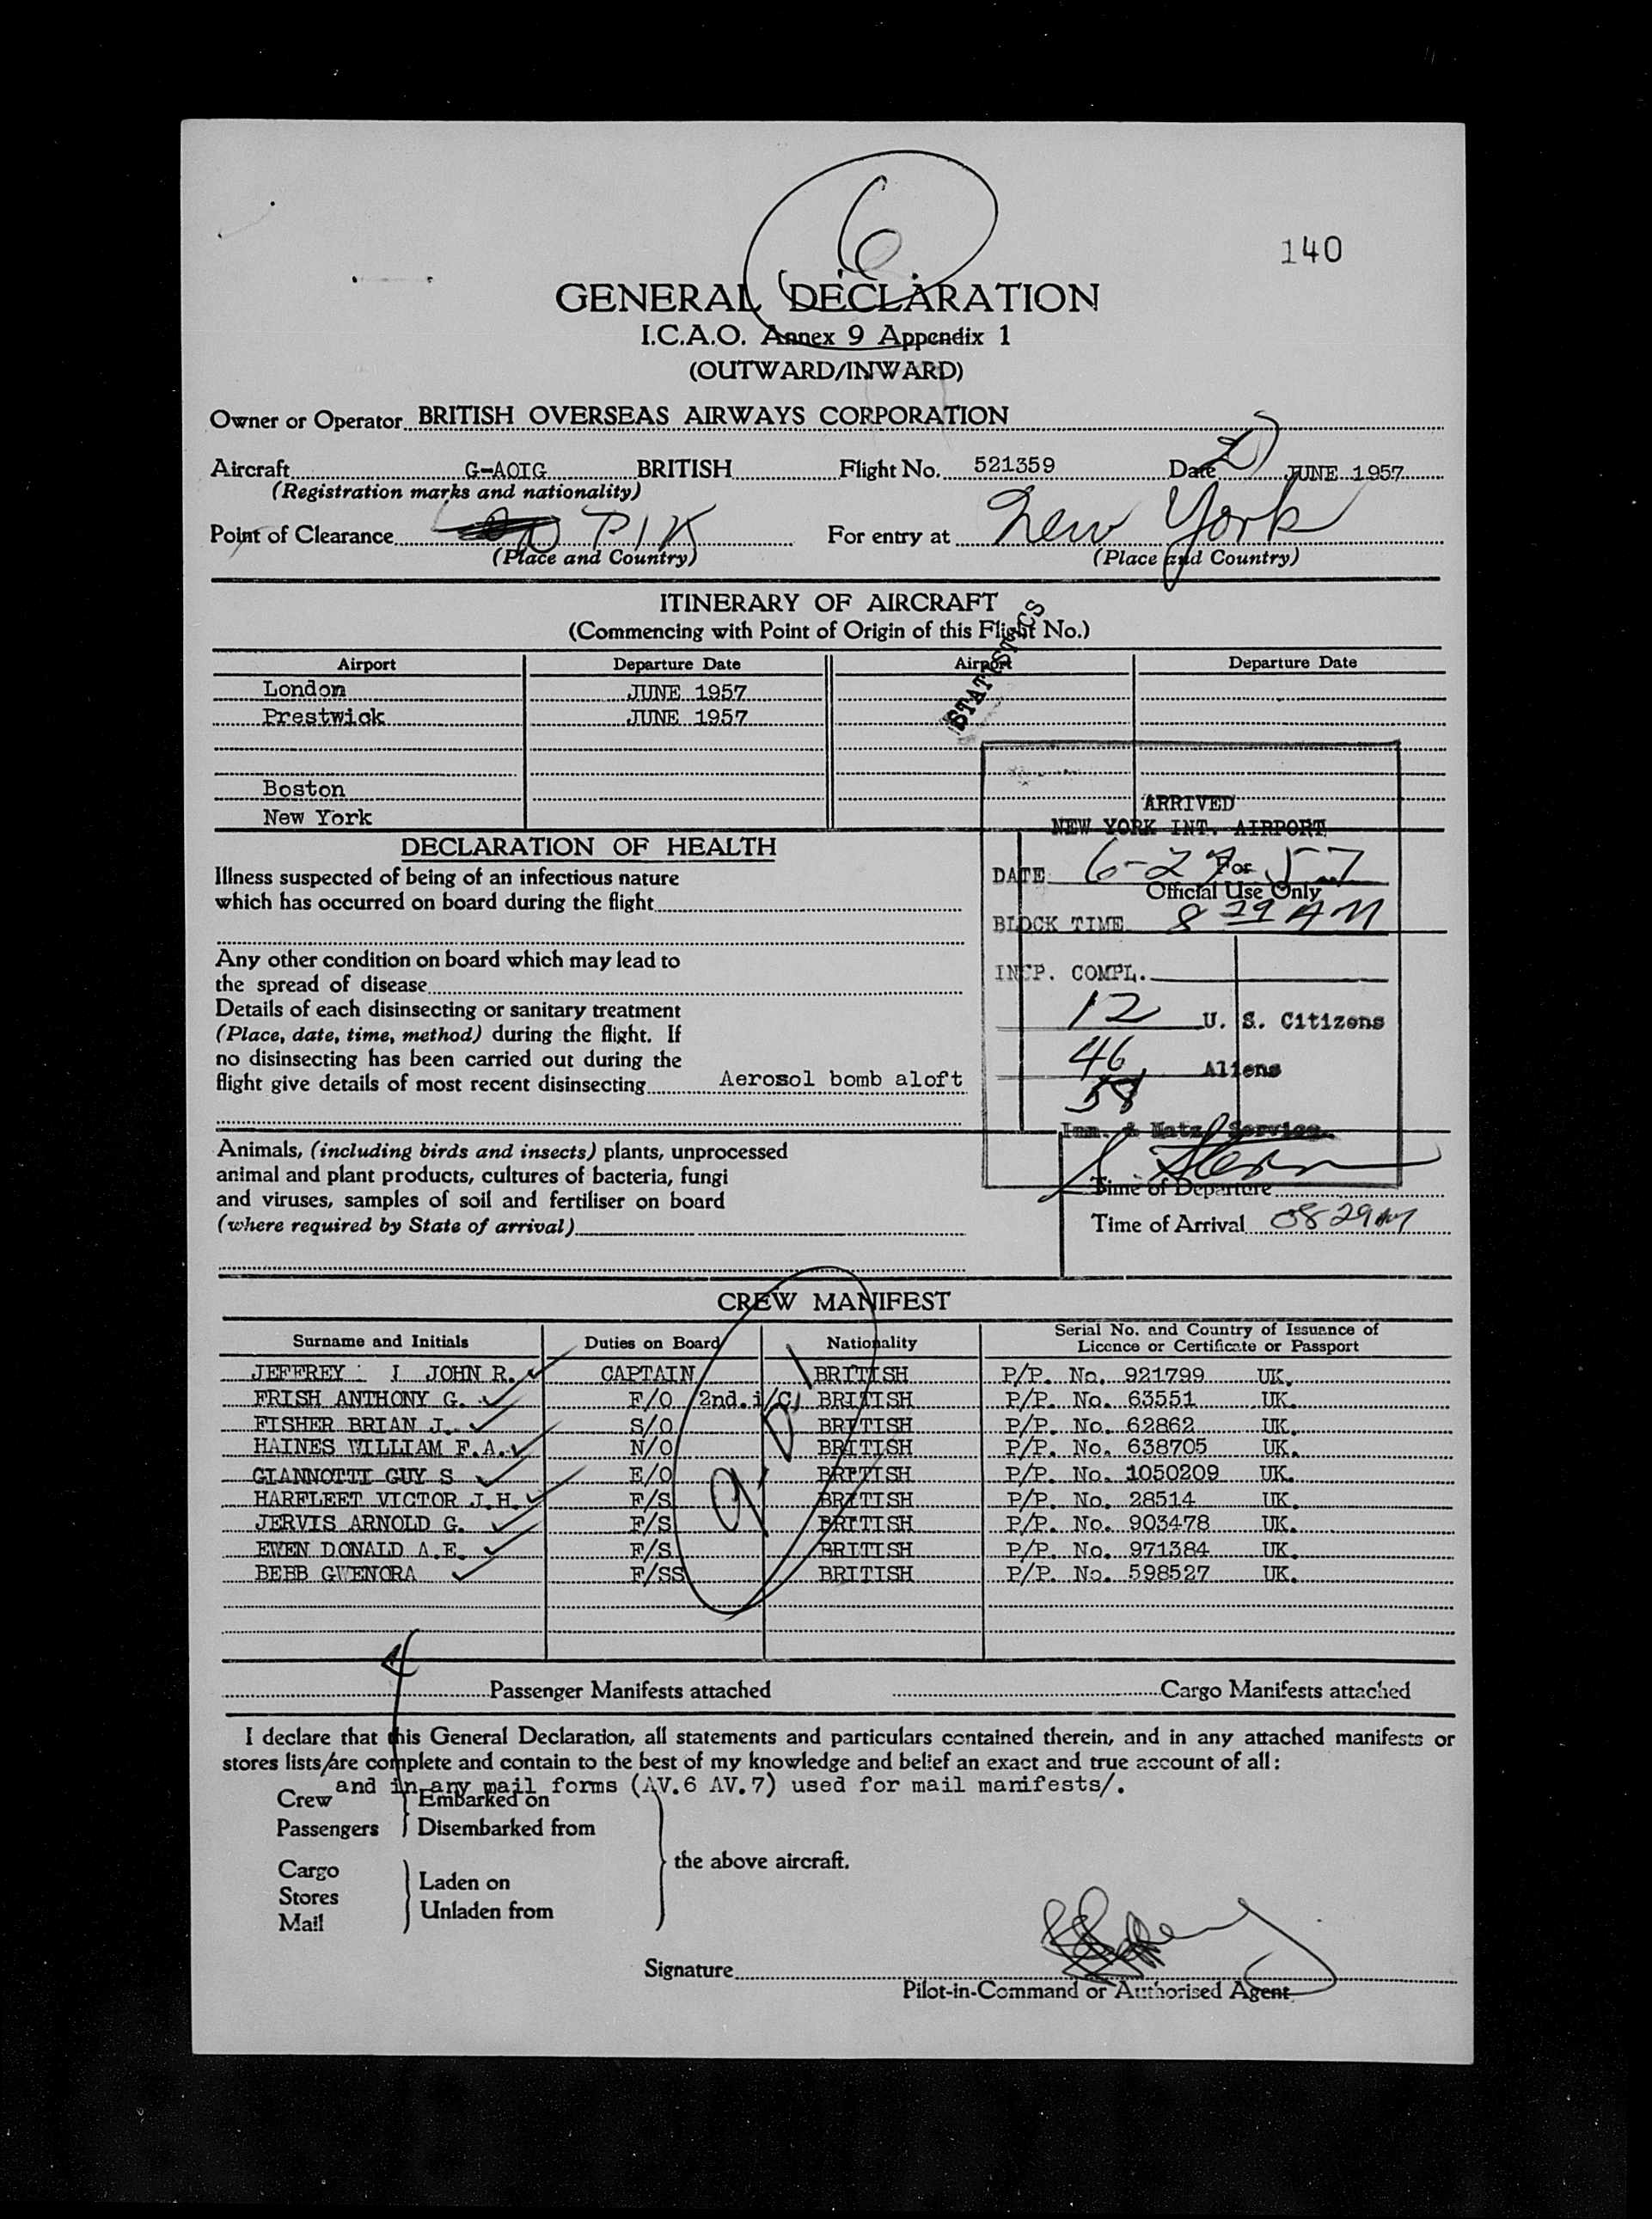 6
140
GENERAL DECLARATION
I.C.A.O. Annex 9 Appendix 1
(OUTWARD/INWARD)
Owner or Operator BRITISH OVERSEAS AIRWAYS CORPORATION
Aircraft G-AOIG BRITISH Flight No. 521359 Date JUNE 1957
(Registration marks and nationality)
Point of Clearance PIK For entry at New York
(Place and Country) (Place and Country)
ITINERARY OF AIRCRAFT
(Commencing with Point of Origin of this Flight No.)
STATISTICS
Airport Departure Date Airport Departure Date
London JUNE 1957
Prestwick JUNE 1957
Boston
New York
ARRIVED
NEW YORK INT. AIRPORT
DATE 6-27-57
For
Official Use Only
BLOCK TIME 8 29 AM
INSP. COMPL.
12 U. S. Citizens
46 Aliens
58
Imm. & Natz. Service
DECLARATION OF HEALTH
Illness suspected of being of an infectious nature
which has occurred on board during the flight
Any other condition on board which may lead to
the spread of disease
Details of each disinsecting or sanitary treatment
(Place, date, time, method) during the flight. If
no disinsecting has been carried out during the
flight give details of most recent disinsecting Aerosol bomb aloft
Animals, (including birds and insects) plants, unprocessed
animal and plant products, cultures of bacteria, fungi
and viruses, samples of soil and fertiliser on board
(where required by State of arrival)
Time of Departure
Time of Arrival 0829 AM
CREW MANIFEST
Surname and Initials Duties on Board Nationality Serial No. and Country of Issuance of
Licence or Certificate or Passport
JEFFREY JOHN R. CAPTAIN BRITISH P/P. No. 921799 UK.
FRISH ANTHONY G. F/O 2nd.i/C. BRITISH P/P. No. 63551 UK.
FISHER BRIAN J. S/O BRITISH P/P. No. 62862 UK.
HAINES WILLIAM F.A. N/O BRITISH P/P. No. 638705 UK.
GIANNOTTI GUY S E/O BRITISH P/P. No. 1050209 UK.
HARFLEET VICTOR J.H. F/S BRITISH P/P. No. 28514 UK.
JERVIS ARNOLD G. F/S BRITISH P/P. No. 903478 UK.
EWEN DONALD A.E. F/S BRITISH P/P. No. 971384 UK.
BEBB GWENORA F/SS BRITISH P/P. No. 598527 UK.
Passenger Manifests attached Cargo Manifests attached
I declare that this General Declaration, all statements and particulars contained therein, and in any attached manifests or
stores lists/are complete and contain to the best of my knowledge and belief an exact and true account of all:
and in any mail forms (AV.6 AV.7) used for mail manifests/.
Crew Embarked on
Passengers Disembarked from
the above aircraft.
Cargo Laden on
Stores
Mail Unladen from
Signature
Pilot-in-Command or Authorised Agent